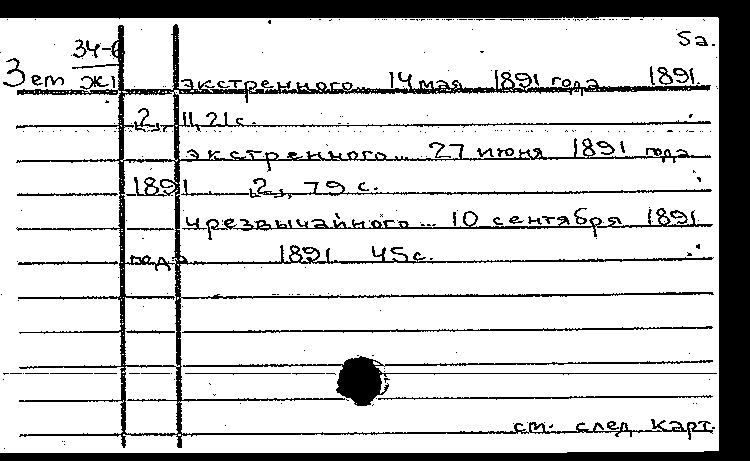 5а.
34-6
Зем ЖІ экстренного... 14 мая 1891 года 1891.
2, II, 21 с.
экстренного... 27 июня 1891 года
1891. 2, 79 с.
чрезвычайного... 10 сентября 1891
года 1891. 45 с.
см. след. карт.